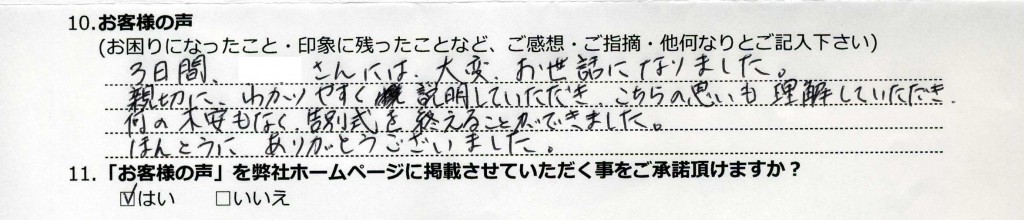 10.お客様の声
(お困りになったこと・印象に残ったことなど、ご感想・ご指摘・他何なりとご記入下さい)
3日間、 さんには、大変、お世話になりました。
親切に、わかりやすく 説明していただき、こちらの思いも理解していただき、
何の不安もなく告別式を終えることができました。
ほんとうに ありがとうございました。
11.「お客様の声」を弊社ホームページに掲載させていただく事をご承諾頂けますか?
☑はい □いいえ